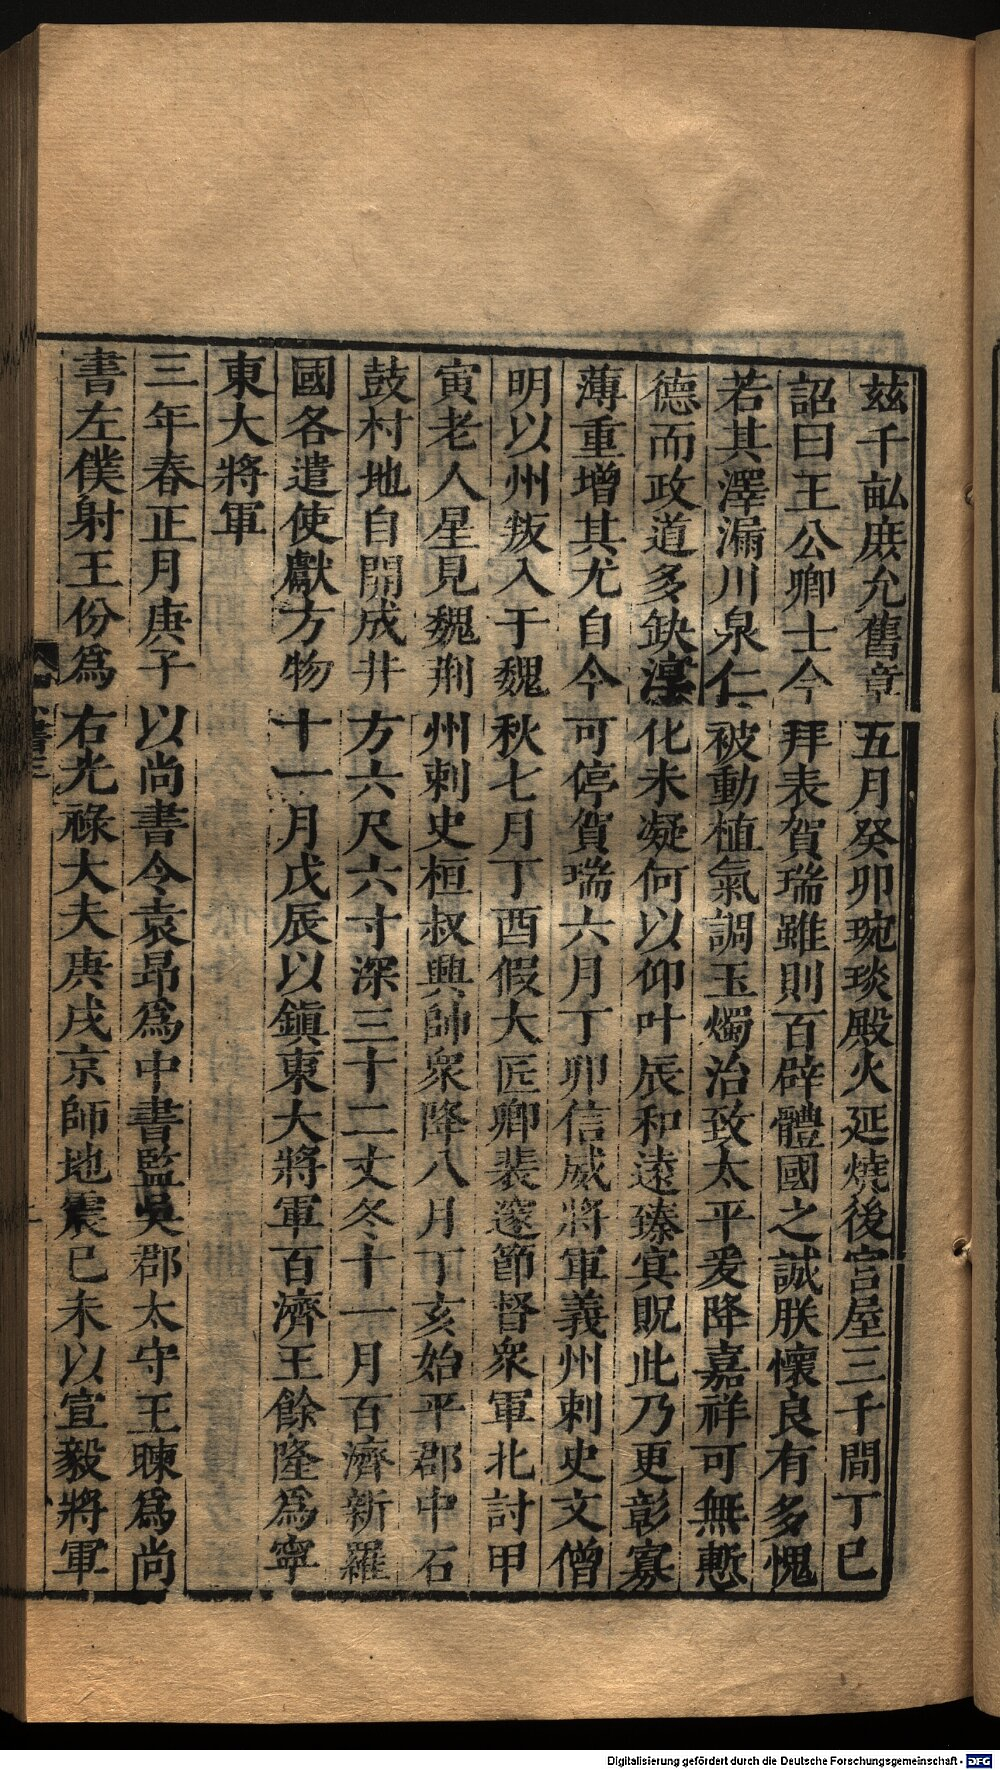 茲千畝庶允舊章五月癸卯琬琰殿火延燒後宮屋三千間丁巳
詔曰王公卿士今拜表賀瑞雖則百辟體國之誠朕懷良有多愧
若其澤漏川泉仁被動植氣調玉燭治致太平爰降嘉祥可無慙
德而政道多缺淳化未凝何以仰叶辰和遠臻冥貺此乃更彰寡
薄重增其尤自今可停賀瑞六月丁卯信威將軍義州刺史文僧
明以州叛入于魏秋七月丁酉假大匠卿裴邃節督衆軍北討甲
寅老人星見魏荆州刺史桓叔興帥衆降八月丁亥始平郡中石
鼓村地自開成井方六尺六寸深三十二丈冬十一月百濟新羅
國各遣使獻方物十一月戊辰以鎮東大將軍百濟王餘隆爲寧
東大將軍
三年春正月庚子以尚書令袁昂爲中書監吳郡太守王暕爲尚
書左僕射王份爲右光祿大夫庚戌京師地震巳未以宣毅將軍
Digitalisierung gefördert durch die Deutsche Forschungsgemeinschaft - DFG